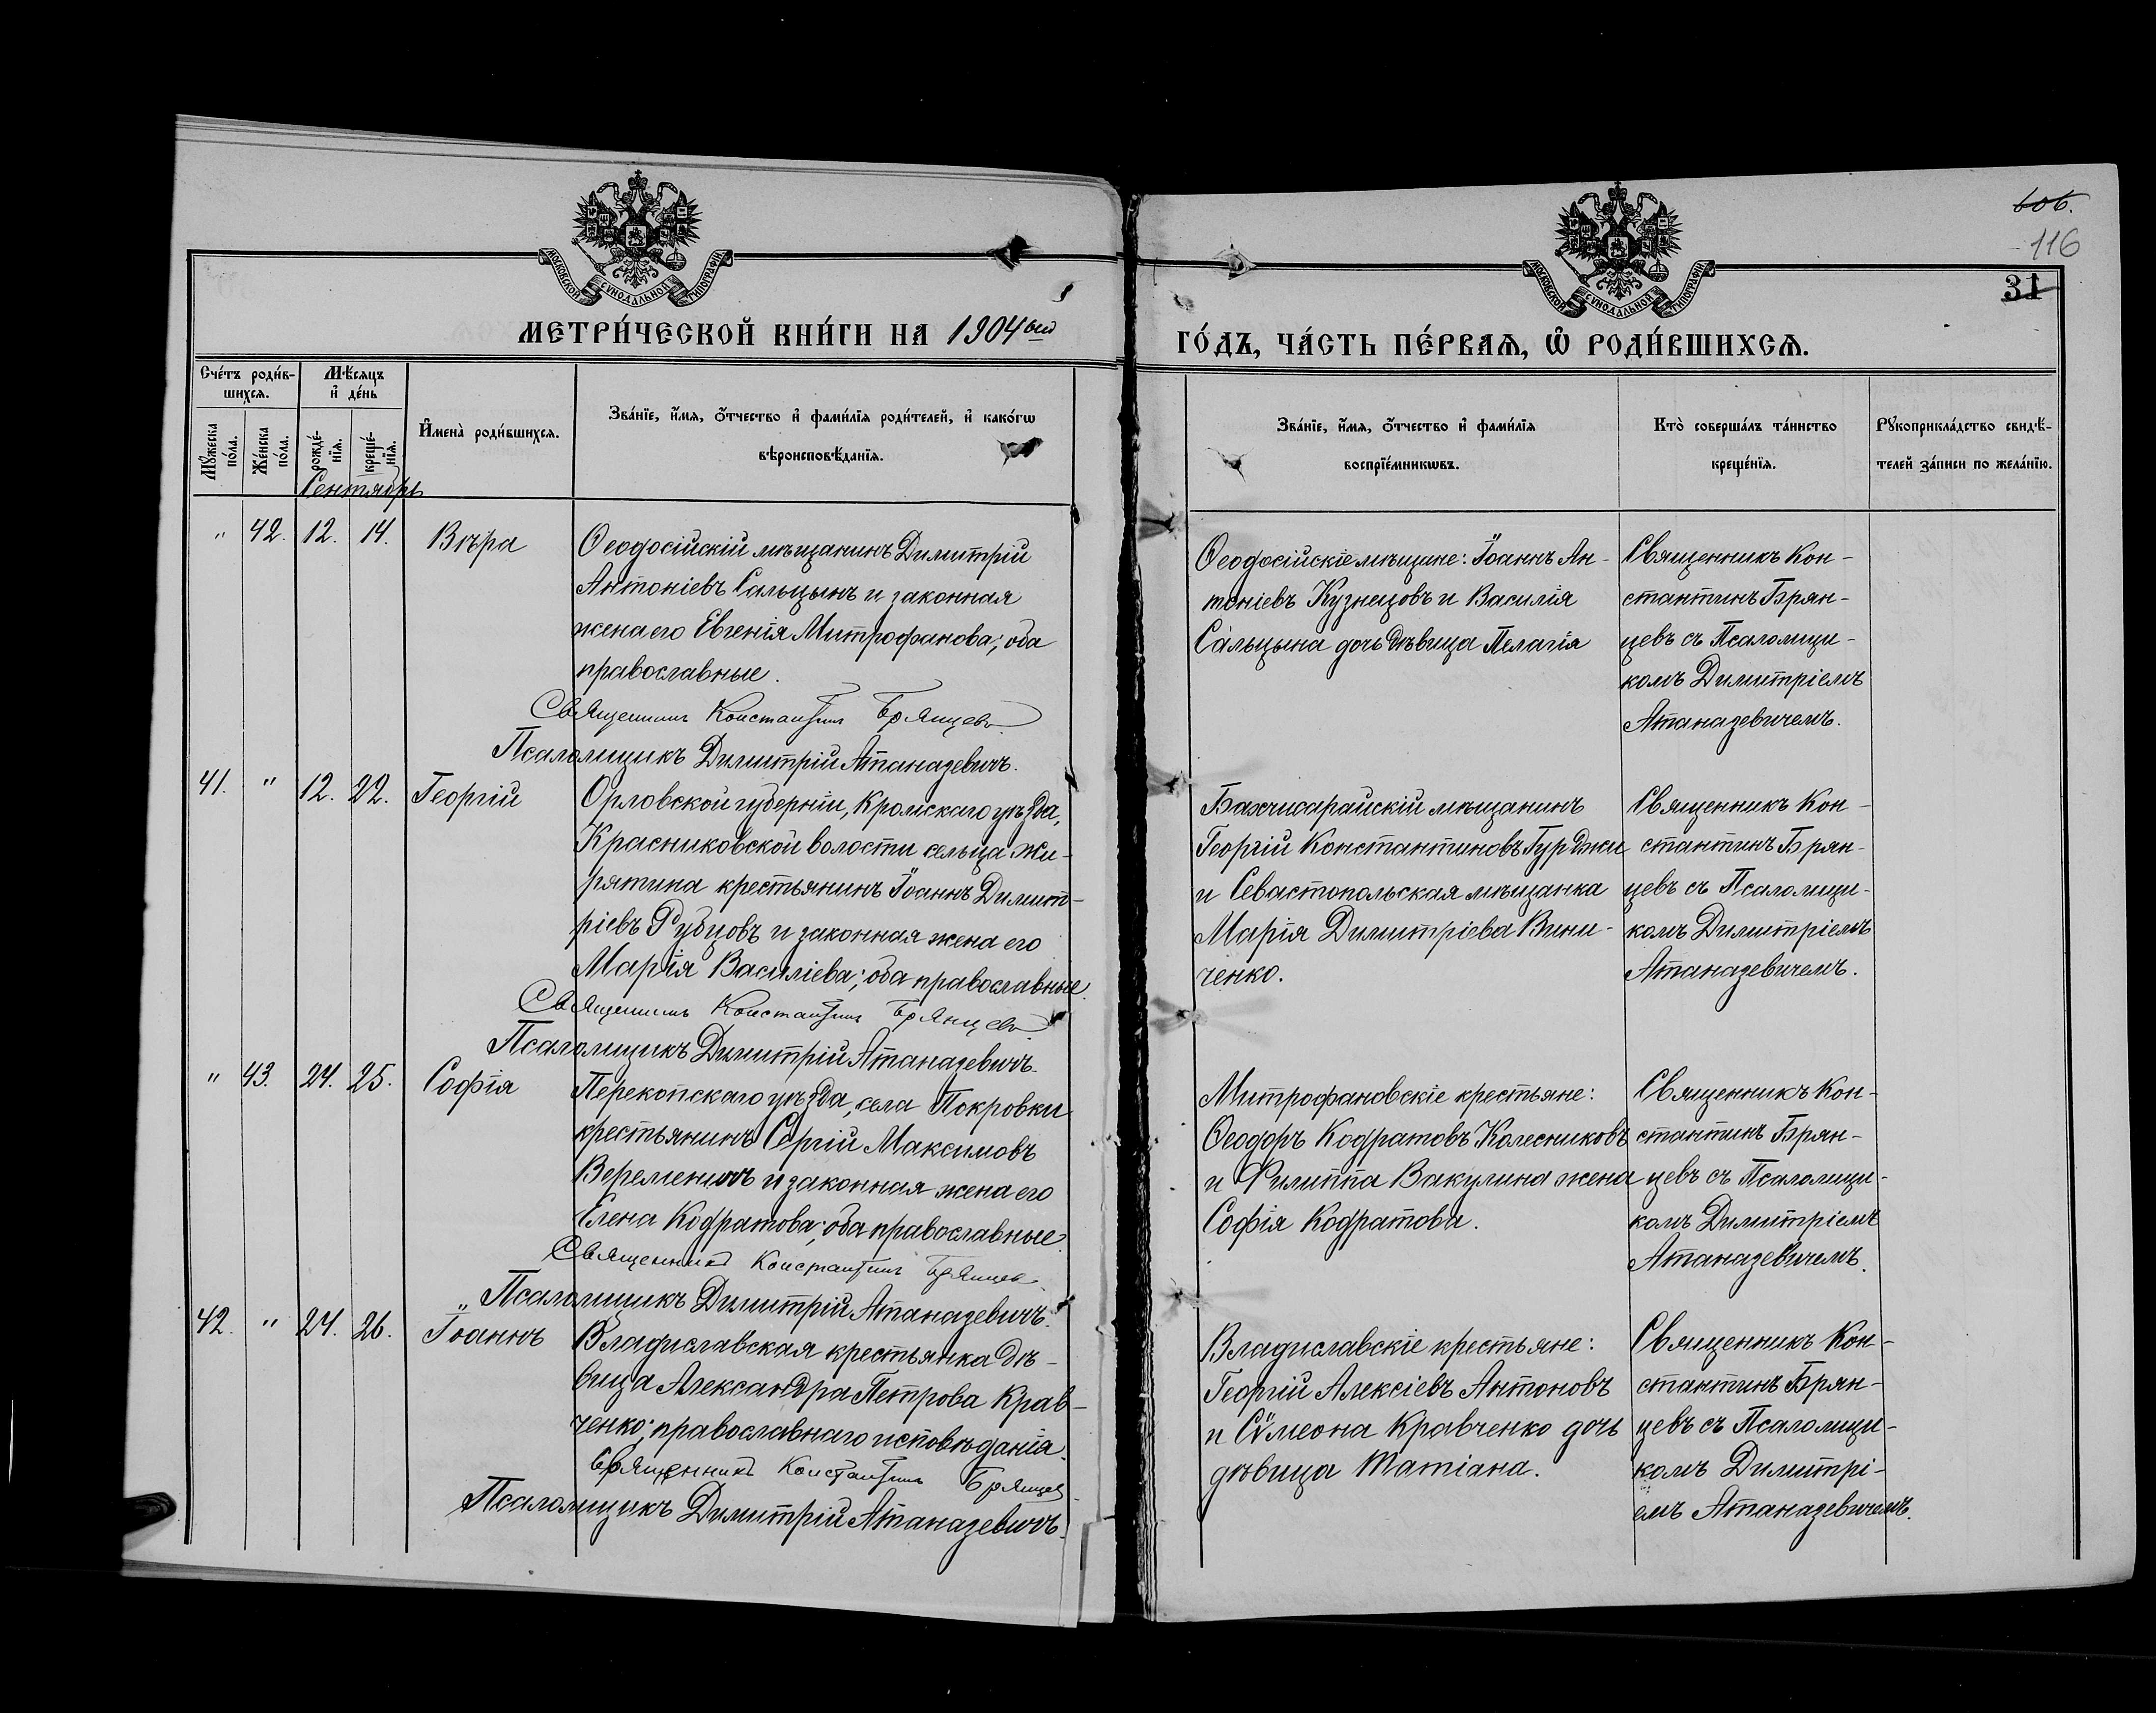 606.
116
31
МОСКОВСКОЙ СѴНОДАЛЬНОЙ ТИПОГРАФІИ
МОСКОВСКОЙ СѴНОДАЛЬНОЙ ТИПОГРАФІИ
МЕТРИ́ЧЕСКОЙ КНИ́ГИ НА 1904ый
ГО́ДЪ, ЧА́СТЬ ПЕ́РВАѦ, Ѡ҆ РОДИ́ВШИХСѦ.
Сче́тъ роди́в-
шихсѧ.
Мѣ́сѧцъ
и҆ де́нь
Мꙋ́жеска
по́ла.
Же́нска
по́ла.
рожде́-
нїѧ.
креще́-
нїѧ.
И҆мена̀ роди́вшихсѧ.
Зва́нїе, и҆́мѧ, ѻ҆́тчество и҆ фами́лїѧ роди́телей, и҆ како́гѡ
вѣроисповѣ́данїѧ.
Зва́нїе, и҆́мѧ, ѻ҆́тчество и҆ фами́лїѧ
воспрїе́мникѡвъ.
Кто̀ соверша́лъ та́инство
креще́нїѧ.
Рꙋкоприкла́дство свидѣ́-
телей за́писи по жела́нїю.
Сентябрь
" 42. 12. 14. Вѣра
Ѳеодосійскій мѣщанинъ Димитрій
Антоніевъ Сальцынъ и законная
жена его Евгенія Митрофанова; оба
православные.
Священникъ Константинъ Брянцевъ
Псаломщикъ Димитрій Атаназевичъ.
Ѳеодосійскіе мѣщане: Іоаннъ Ан-
тоніевъ Кузнецовъ и Василія
Сальцына дочь дѣвица Пелагія
Священникъ Кон-
стантинъ Брян-
цевъ съ Псаломщи-
комъ Димитріемъ
Атаназевичемъ.
41. " 12. 22. Георгій
Орловской губерніи, Кромскаго уѣзда,
Красниковской волости сельца Жи-
рятина крестьянинъ Іоаннъ Димит-
ріевъ Рубцовъ и законная жена его
Марія Василіева; оба православные.
Священникъ Константинъ Брянцевъ
Псаломщикъ Димитрій Атаназевичъ.
Бахчисарайскій мѣщанинъ
Георгій Константиновъ Гурджи
и Севастопольская мѣщанка
Марія Димитріева Вини-
ченко.
Священникъ Кон-
стантинъ Брян-
цевъ съ Псаломщи-
комъ Димитріемъ
Атаназевичемъ.
" 43. 24. 25. Софія
Перекопскаго уѣзда, села Покровки
крестьянинъ Сергій Максимовъ
Веременичъ и законная жена его
Елена Кодратова; оба православные.
Священникъ Константинъ Брянцевъ
Псаломщикъ Димитрій Атаназевичъ.
Митрофановскіе крестьяне:
Ѳеодоръ Кодратовъ Колесниковъ
и Филиппа Вакулина жена
Софія Кодратова.
Священникъ Кон-
стантинъ Брян-
цевъ съ Псаломщи-
комъ Димитріемъ
Атаназевичемъ.
42. " 24. 26. Іоаннъ
Владиславская крестьянка дѣ-
вица Александра Петрова Крав-
ченко; православнаго исповѣданія.
Священникъ Константинъ Брянцевъ
Псаломщикъ Димитрій Атаназевичъ.
Владиславскіе крестьяне:
Георгій Алексіевъ Антоновъ
и Сѵмеона Кравченко дочь
дѣвица Татіана.
Священникъ Кон-
стантинъ Брян-
цевъ съ Псаломщи-
комъ Димитрі-
емъ Атаназевичемъ.